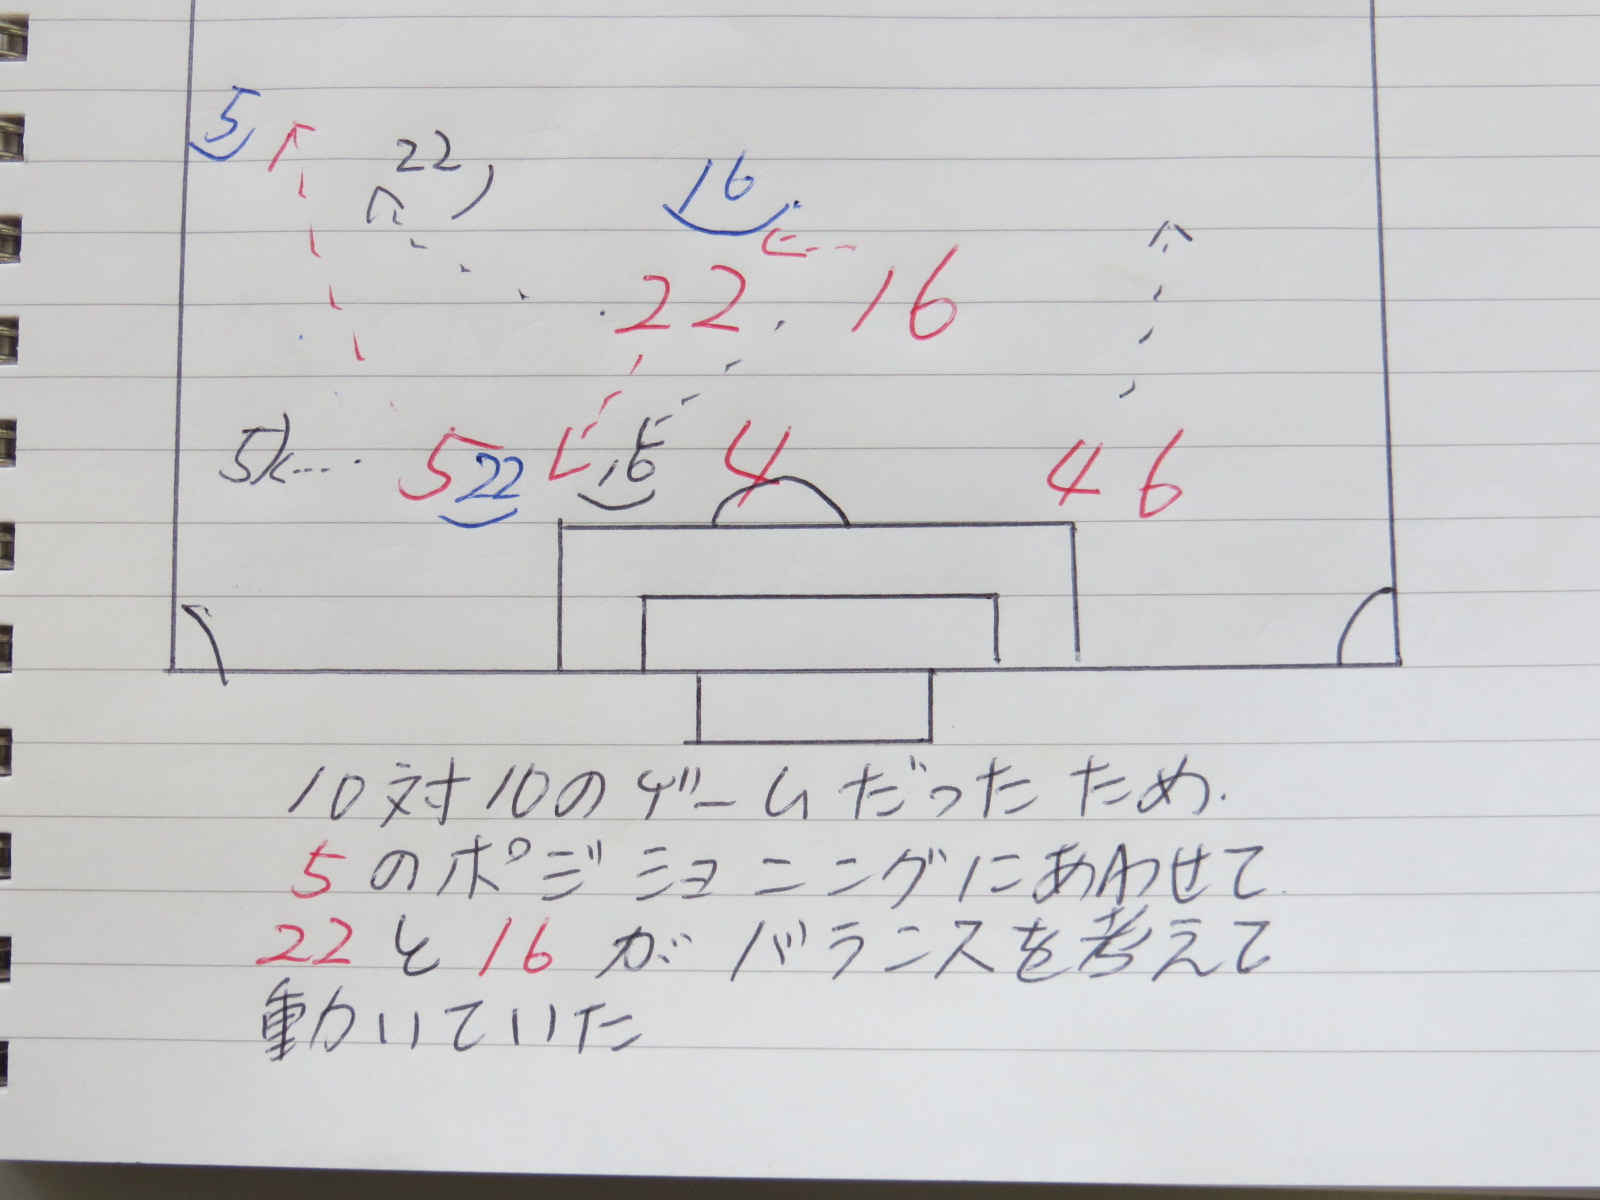 5
22
16
22 16
5 5 22 16 4 46
10対10のゲームだったため.
5のポジショニングにあわせて.
22と16がバランスを考えて
動いていた